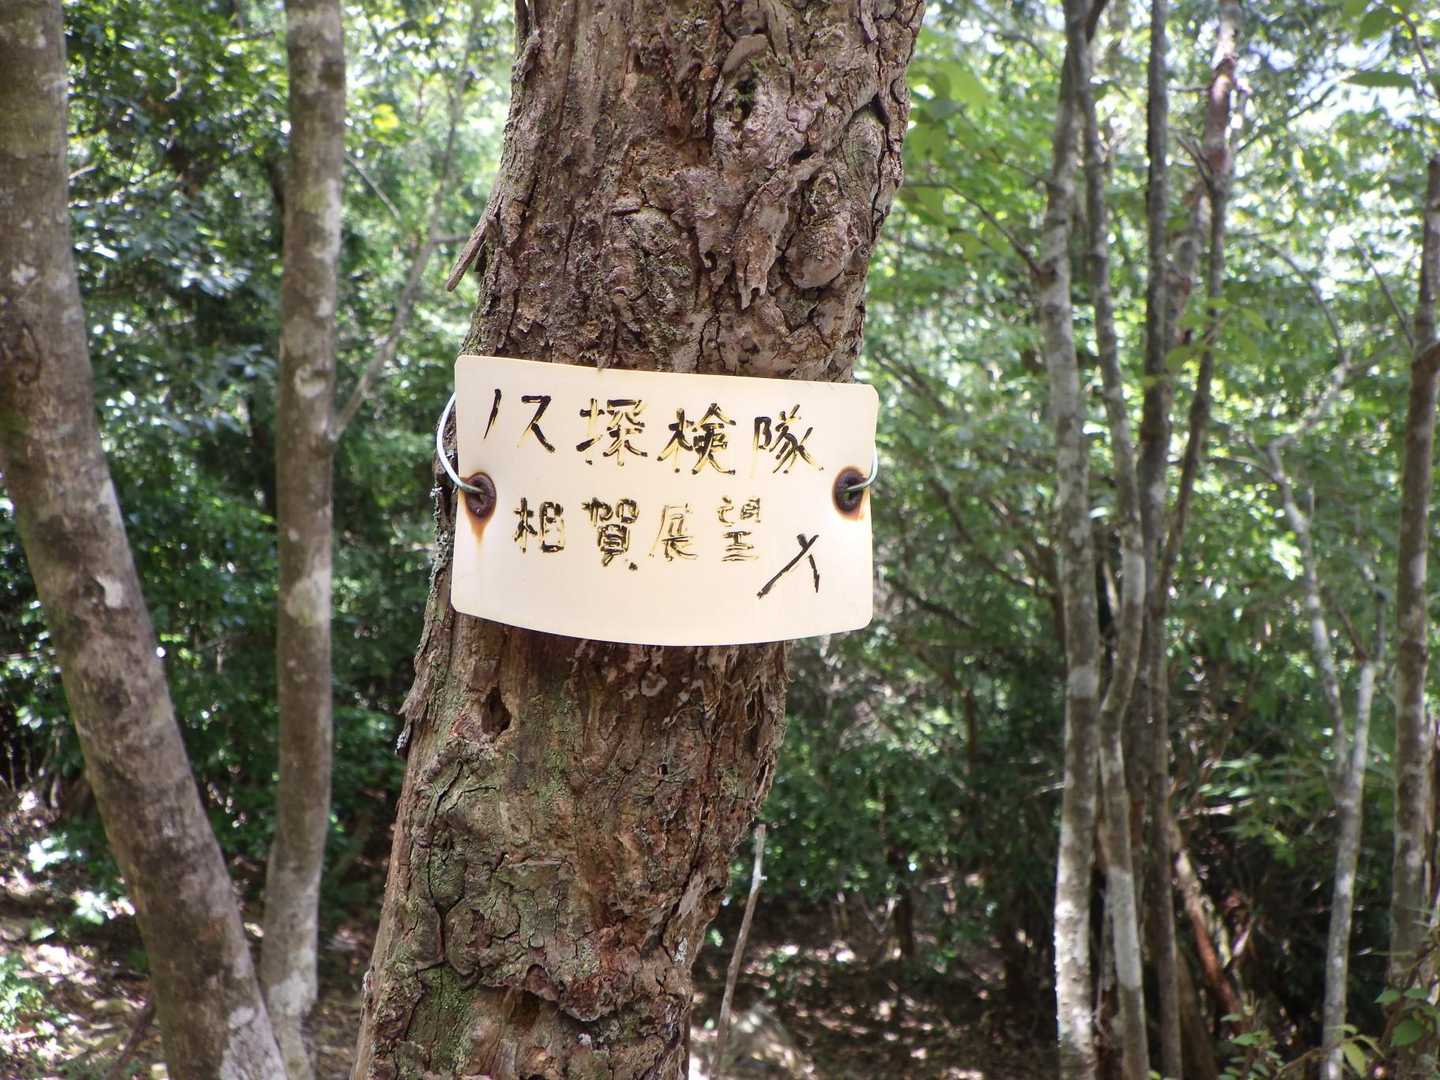 ノス探検隊
相賀展望